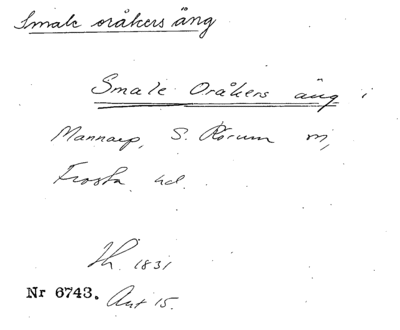 Smale oråkers äng
Smale Oråkers äng i
Mannarp, S. Rörum sn,
Frosta hd.
Th. 1831
Nr 6743. Akt 15.